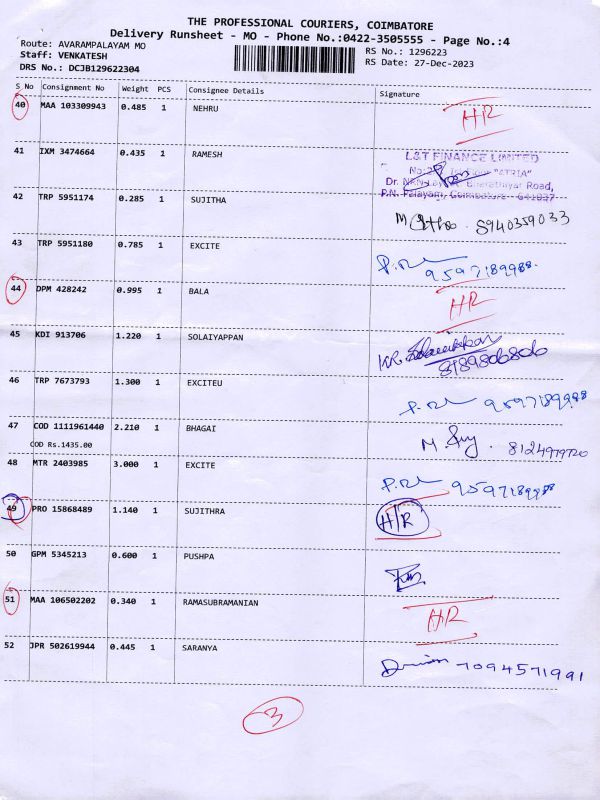 THE PROFESSIONAL COURIERS, COIMBATORE
Delivery Runsheet - MO - Phone No.:0422-3505555 - Page No.:4
Route: AVARAMPALAYAM MO
Staff: VENKATESH
DRS No.: DCJB129622304
RS No.: 1296223
RS Date: 27-Dec-2023
S No Consignment No Weight PCS Consignee Details Signature
40 MAA 103309943 0.485 1 NEHRU HR
41 IXM 3474664 0.435 1 RAMESH
L&T FINANCE LIMITED
"ATRIA"
Bharathiyar Road,
P.N. Palayam, Coimbatore - 641037
42 TRP 5951174 0.285 1 SUJITHA 8940359033
43 TRP 5951180 0.785 1 EXCITE 9597189988
44 DPM 428242 0.995 1 BALA HR
45 KDI 913706 1.220 1 SOLAIYAPPAN 8189806806
46 TRP 7673793 1.300 1 EXCITEU 9597189988
47 COD 1111961440 2.210 1 BHAGAI
COD Rs.1435.00
48 MTR 2403985 3.000 1 EXCITE 9597189988
49 PRO 15868489 1.140 1 SUJITHRA H/R
50 GPM 5345213 0.600 1 PUSHPA
51 MAA 106502202 0.340 1 RAMASUBRAMANIAN HR
52 JPR 502619944 0.445 1 SARANYA 7094571991
3